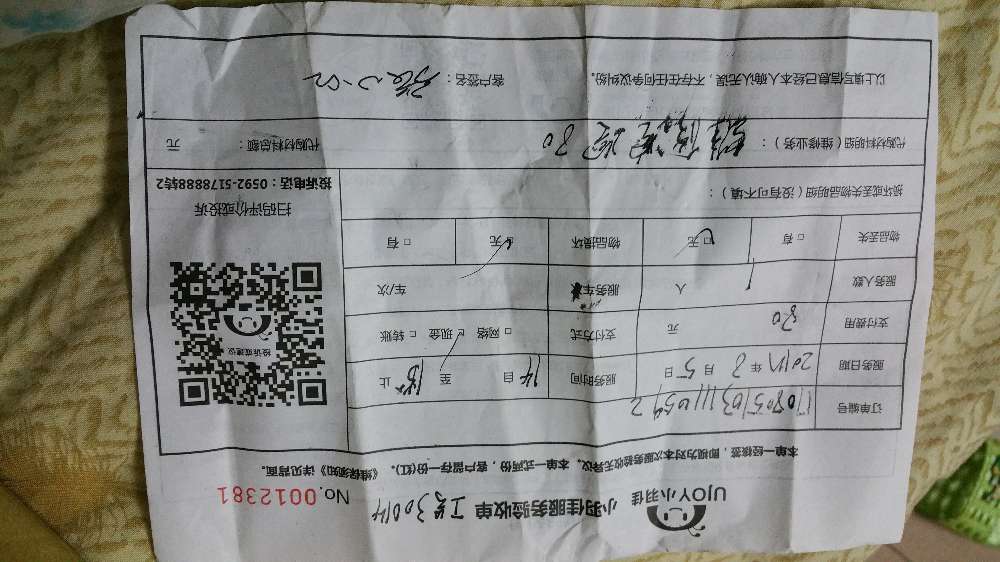 UJOY小羽佳 小羽佳服务验收单 工号30014 No.0012381
本单一经核签，即视为对本次服务验收无异议。本单一式两份，客户留存一份(红)。《维保须知》详见背面。
订单编号
服务日期 2017年8月5日 服务时间 14自 至 止
支付费用 80 元 支付方式 □网络 □现金 □转账
服务人数 1 人 服务车次 车/次
物品丢失 □有 □无 物品损坏 □无 □有
投诉或建议
扫码评价或投诉
投诉电话：0592-5178888转2
损坏或丢失物品明细（没有可不填）：
代购材料明细（维修业务）： 80 代购材料总额： 元
以上填写信息已经本人确认无误，不存在任何争议纠纷。 客户签名：